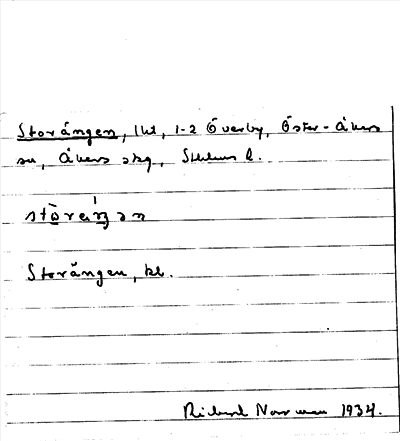 Storängen, lht, 1-2 Överby, Öster-Åkers
sn, Åkers skg, Sthlms l.
stòreŋ́ən
Storängen, kl.
Rickard Norrman 1934.